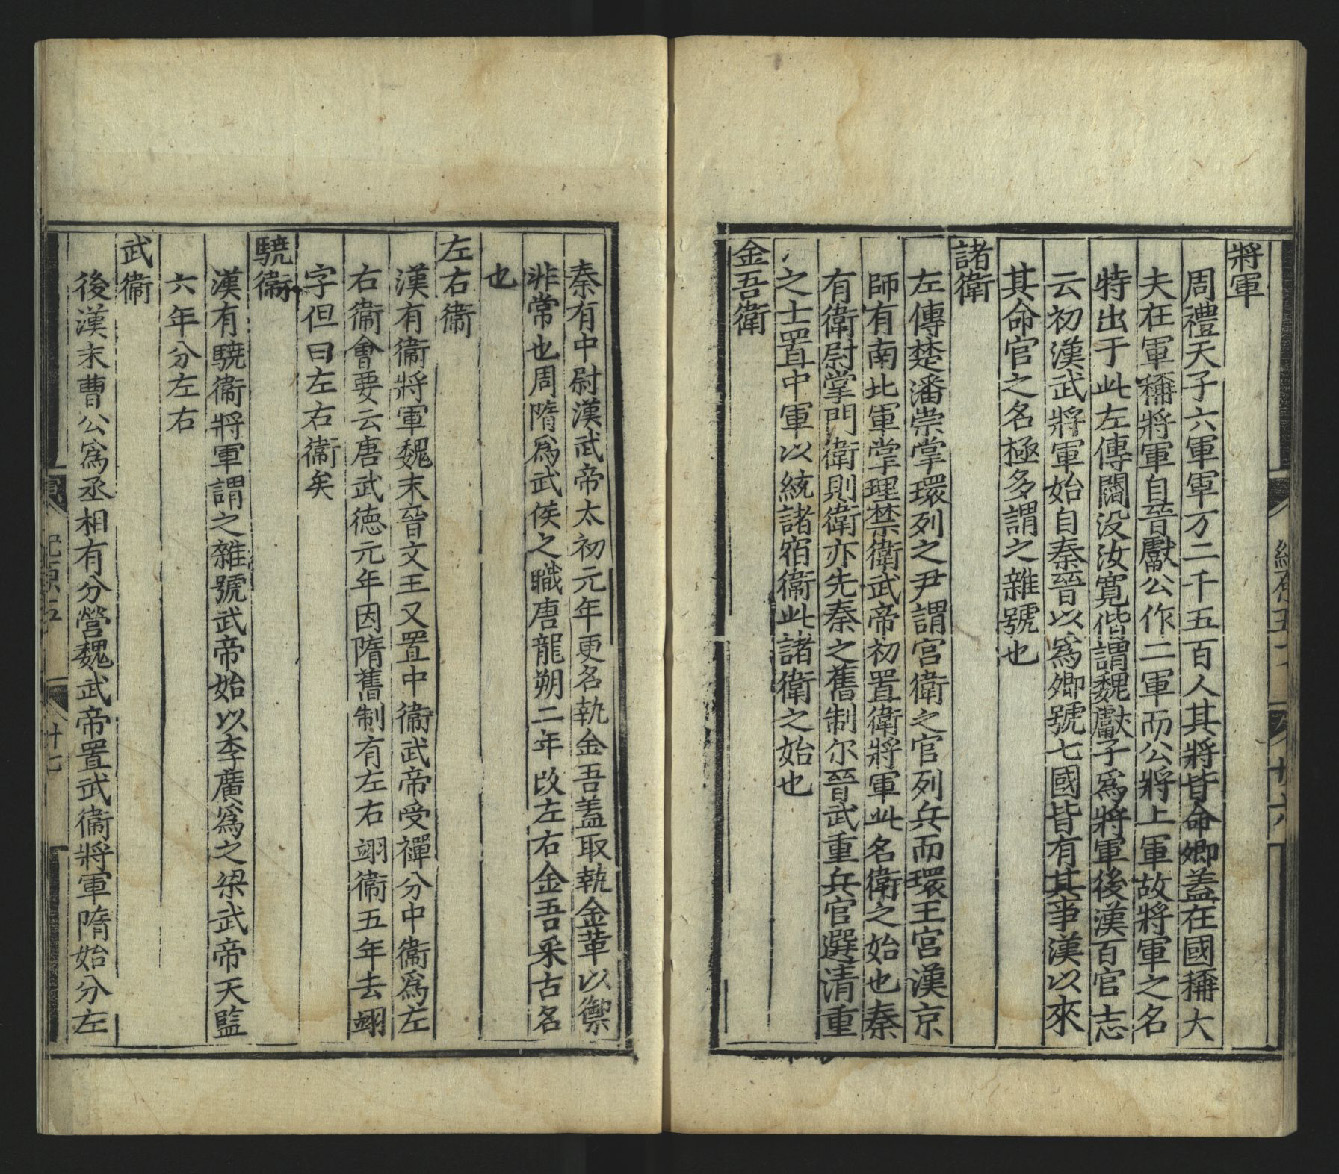 將軍
周禮天子六軍軍万二千五百人其將皆命卿蓋在國稱大
夫在軍稱將軍自晉獻公作二軍而公將上軍故將軍之名
特出于此左傳閻没汝寬偕謂魏獻子爲將軍後漢百官志
云初漢武將軍始自秦晉以爲卿號七國皆有其事漢以來
其命官之名極多謂之雜號也
諸衛
左傳楚潘崇掌環列之尹謂宮衛之官列兵而環王宮漢京
師有南北軍掌理禁衛武帝初置衛將軍此名衛之始也秦
有衛尉掌門衛則衛亦先秦之舊制尔晉武重兵官選清重
之士置中軍以統諸宿衞此諸衛之始也
金吾衛
秦有中尉漢武帝太初元年更名執金吾蓋取執金革以禦
非常也周隋爲武侯之職唐龍朔二年改左右金吾采古名
也
左右衞
漢有衞將軍魏末晉文王又置中衞武帝受禪分中衞爲左
右衞會要云唐武德元年因隋舊制有左右翊衞五年去翊
字但曰左右衞矣
驍衞
漢有驍衞將軍謂之雜號武帝始以李廣爲之梁武帝天監
六年分左右
武衞
後漢末曹公爲丞相有分營魏武帝置武衞將軍隋始分左
紀原五
廿七